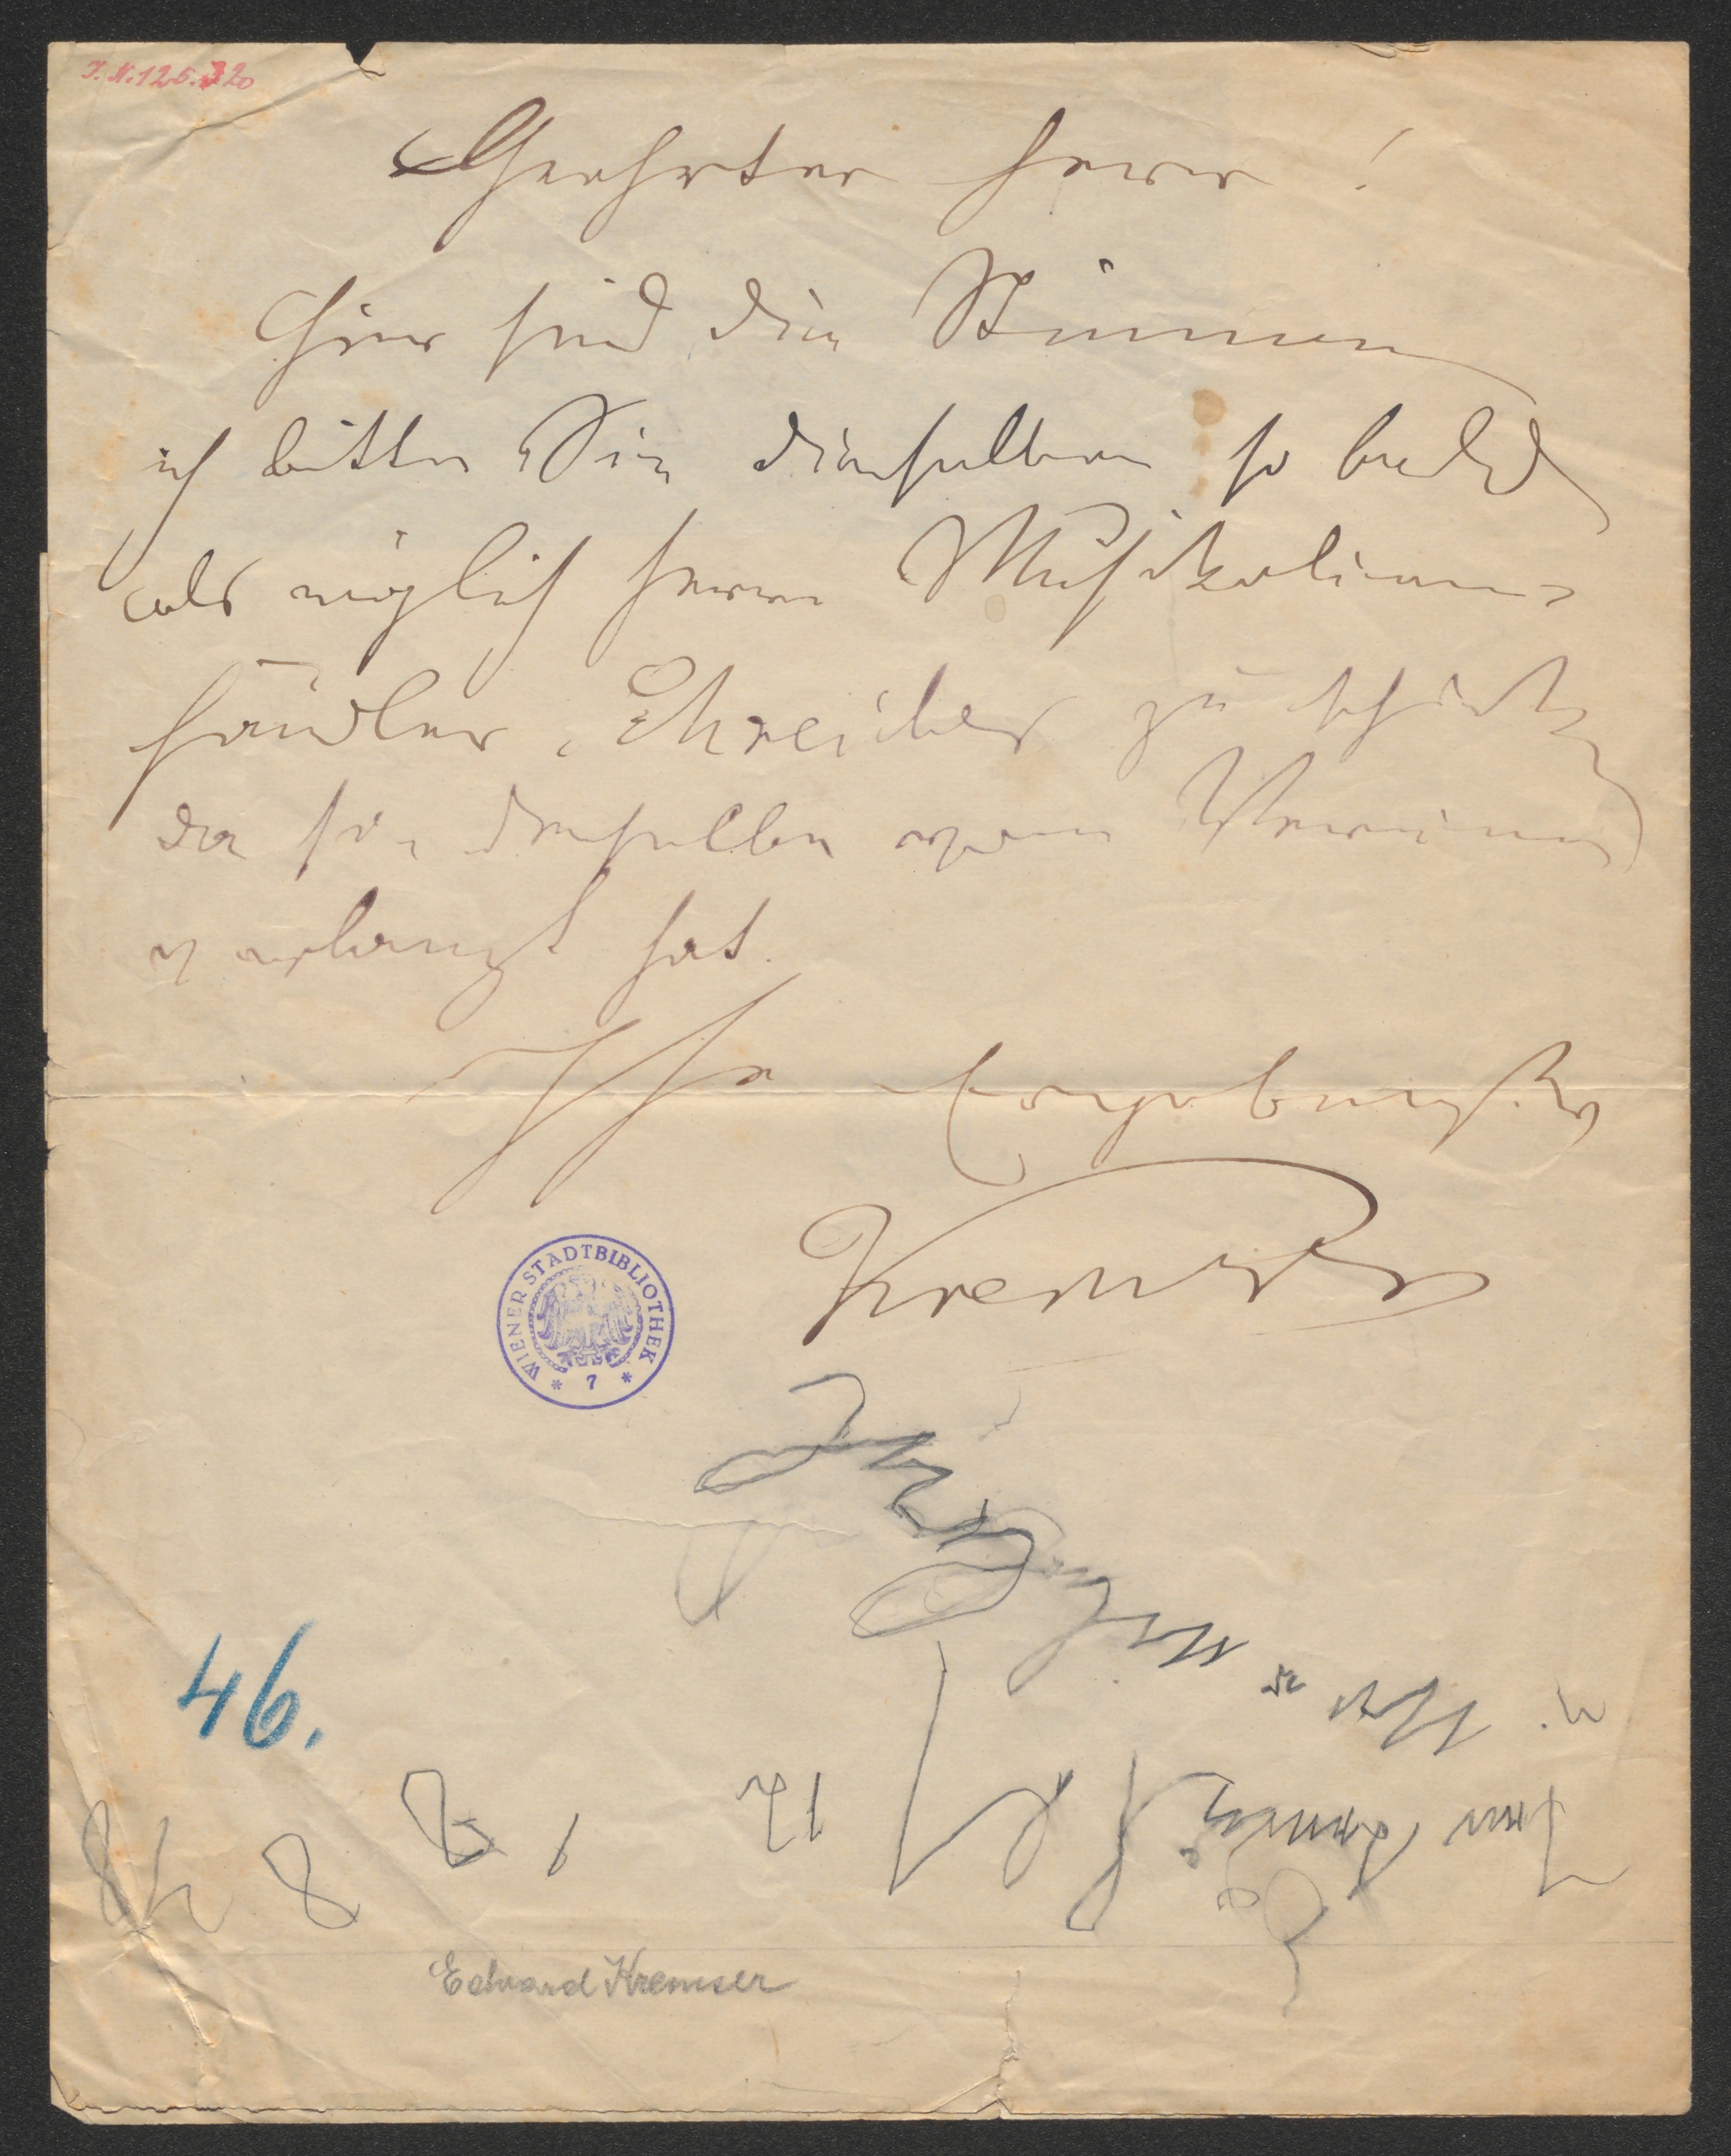 I. N. 125.720
Geehrter Herr!
Hier sind die Stimmen
ich bitte Sie dieselben so bald
als möglich Herrn Musikalien-
händler Schreiber zu schicken
da sie derselbe vom Vereine
verlangt hat.
Ihr Ergebenster
Kremser
WIENER STADTBIBLIOTHEK
* 7 *
46.
12
8
48
Eduard Kremser